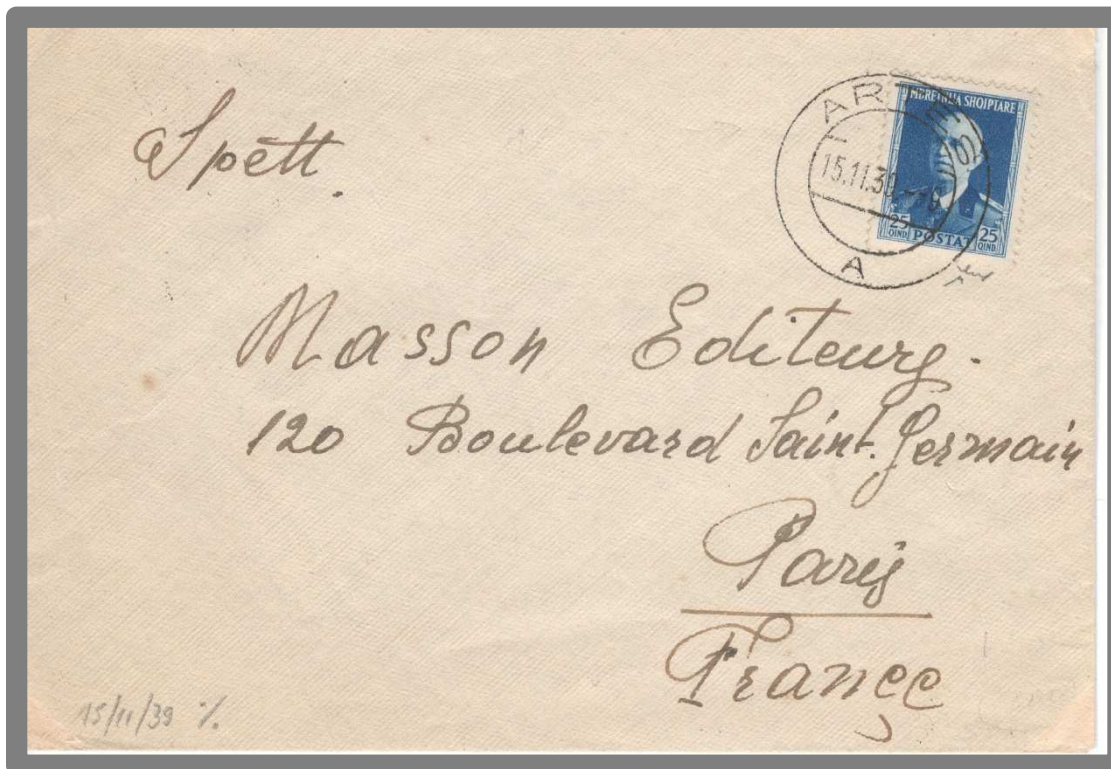 Spett.
MBRETNIJA SHQIPTARE
15.11.39.-18
A
25 QIND POSTAT 25 QIND
Masson Editeurs.
120 Boulevard Saint-Germain
Paris
France
15/11/39 %.